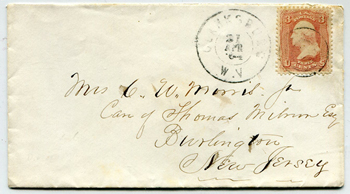 27
APR
'64
W.V
3 3
Mrs C. W. Morris Jr
Care of Thomas Milnor Esq
Burlington
New Jersey